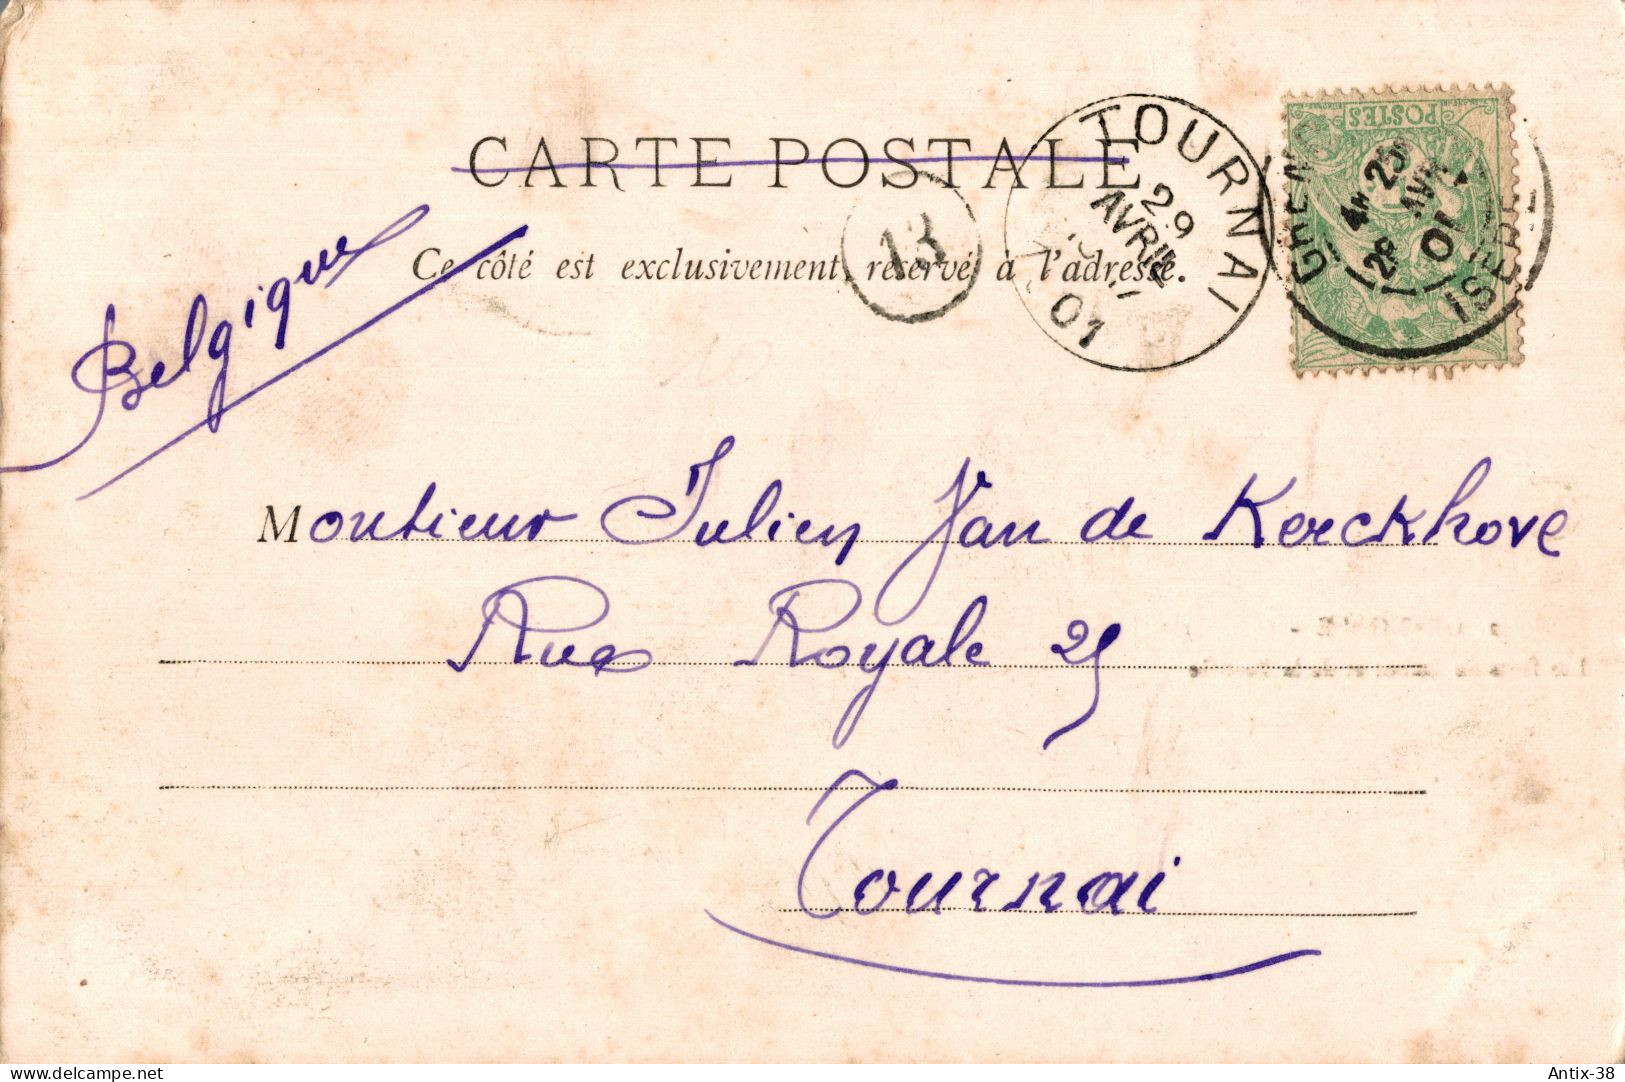 CARTE POSTALE
Ce côté est exclusivement réservé à l'adresse.
TOURNAI
29
AVRIL
01
13
POSTES
GRENO
4E 25
28 AVR
01
ISERE
Belgique
Monsieur Julien Van de Kerckhove
Rue Royale 25
Tournai
delcampe.net
Antix-38